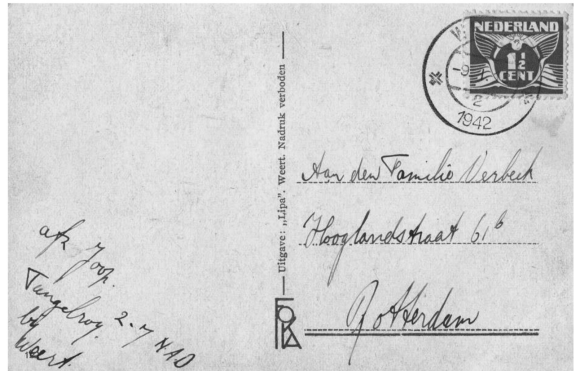 NEDERLAND
1½
CENT
1942
Uitgave: „Lipa”. Weert. Nadruk verboden
Aan den Familie Verbeek
Hooglandstraat 61b
Rotterdam
afz Joop.
Tungelroy. 2-7 NAD
by
Weert.